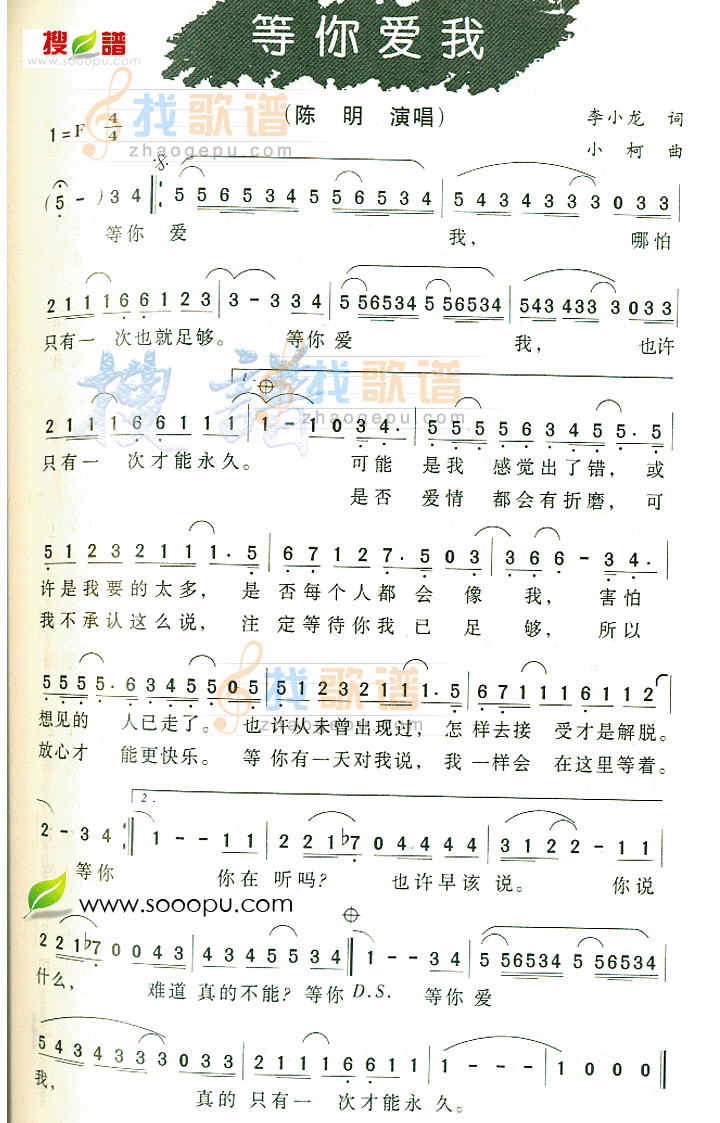 搜谱
www.sooopu.com
等你爱我
找歌谱
zhaogepu.com
1=F 4/4
(陈 明 演唱)
李小龙 词
小 柯 曲
(5 -) 3 4 5 5 6 5 3 4 5 5 6 5 3 4 5 4 3 4 3 3 3 0 3 3
等你 爱 我， 哪怕
2 1 1 1 6 6 1 2 3 3 - 3 3 4 5 56534 5 56534 543 433 3 0 3 3
只有一 次也就足够。 等你 爱 我， 也许
找歌谱
zhaogepu.com
搜谱
1.
2 1 1 1 6 6 1 1 1 1 - 1 0 3 4. 5 5 5 5 6 3 4 5 5. 5
只有一 次才能永久。 可能 是我 感觉出了错，或
是否 爱情 都会有折磨，可
5 1 2 3 2 1 1 1. 5 6 7 1 2 7. 5 0 3 3 6 6 - 3 4.
许是我要的太多， 是 否每个人都 会 像 我， 害怕
我不承认这么说， 注 定等待你我已 足 够， 所以
找歌谱
zhaogepu.com
5 5 5 5. 6 3 4 5 5 0 5 5 1 2 3 2 1 1 1. 5 6 7 1 1 1 6 1 1 2
想见的 人已走了。 也许从未曾出现过，怎 样去接 受才是解脱。
放心才 能更快乐。 等你有一天对我说，我一样会 在这里等着。
2.
2 - 3 4 1 - - 1 1 2 2 1 ♭7 0 4 4 4 4 3 1 2 2 - 1 1
等你 你在 听吗？ 也许早该 说。 你说
www.sooopu.com
2 2 1 ♭7 0 0 4 3 4 3 4 5 5 3 4 1 - - 3 4 5 56534 5 56534
什么， 难道 真的不能？等你 D.S. 等你 爱
5 4 3 4 3 3 3 0 3 3 2 1 1 1 6 6 1 1 1 - - - 1 0 0 0
我， 真的 只有一 次才能永 久。